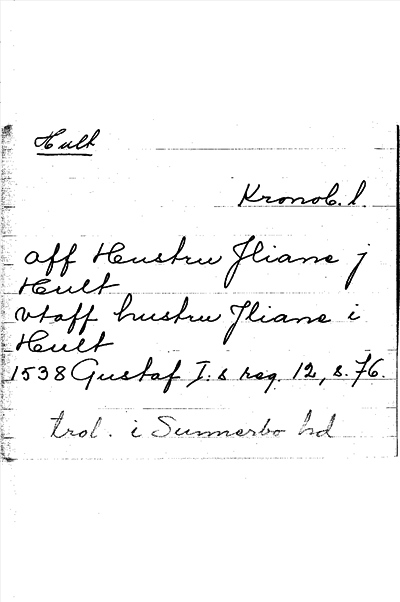 Hult
Kronob. l.
aff Hustru Iliane j
Hult
vtaff hustru Iliane i
Hult
1538 Gustaf I:s reg. 12, s. 76.
trol. i Sunnerbo hd